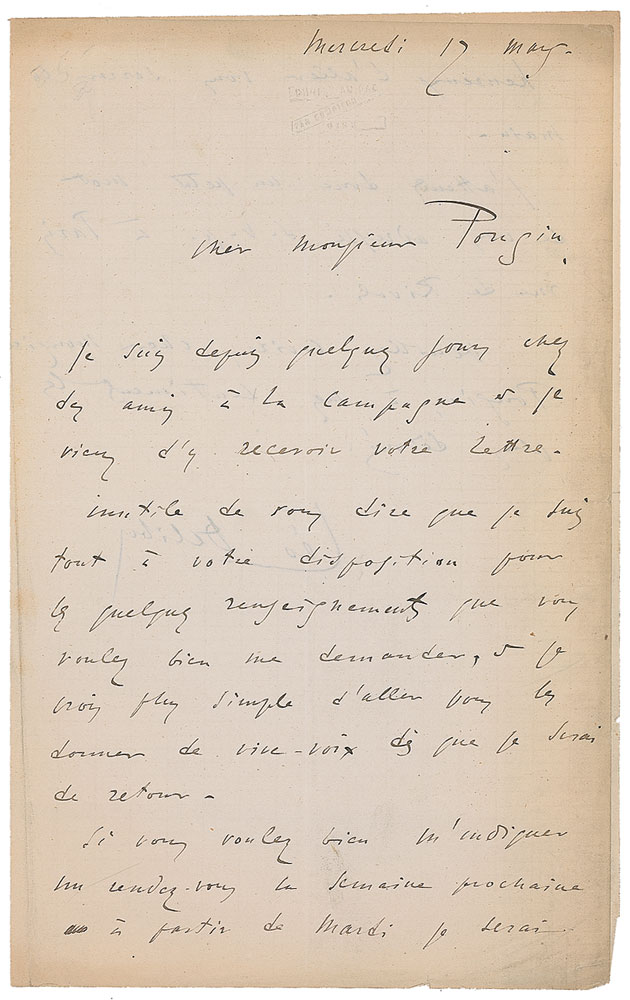 Mercredi 17 mars.
cher Monsieur Pougin.
je suis depuis quelques jours chez
des amis à la campagne et je
viens d'y recevoir votre lettre.
inutile de vous dire que je suis
tout à votre disposition pour
les quelques renseignements que vous
voulez bien me demander, et je
crois plus simple d'aller vous les
donner de vive-voix dès que je serai
de retour.
Si vous voulez bien m'indiquer
un rendez-vous la semaine prochaine
à partir de Mardi je serai